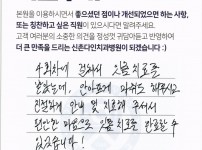 본원을 이용하시면서 좋으셨던 점이나 개선되었으면 하는 사항,
또는 칭찬하고 싶은 직원이 있으시다면 말려주세요.
고객 여러분의 소중한 의견을 정성껏 귀담아듣고 반영하여
더 큰 만족을 드리는 신촌다인치과병원이 되겠습니다 :)
4회차에 걸쳐서 잇몸 치료를
받는데, 안아프게 마취도 해주시고
친절하게 안내 및 치료해 주셔서
편안한 마음으로 잇몸치료를 완료할 수
있었습니다!